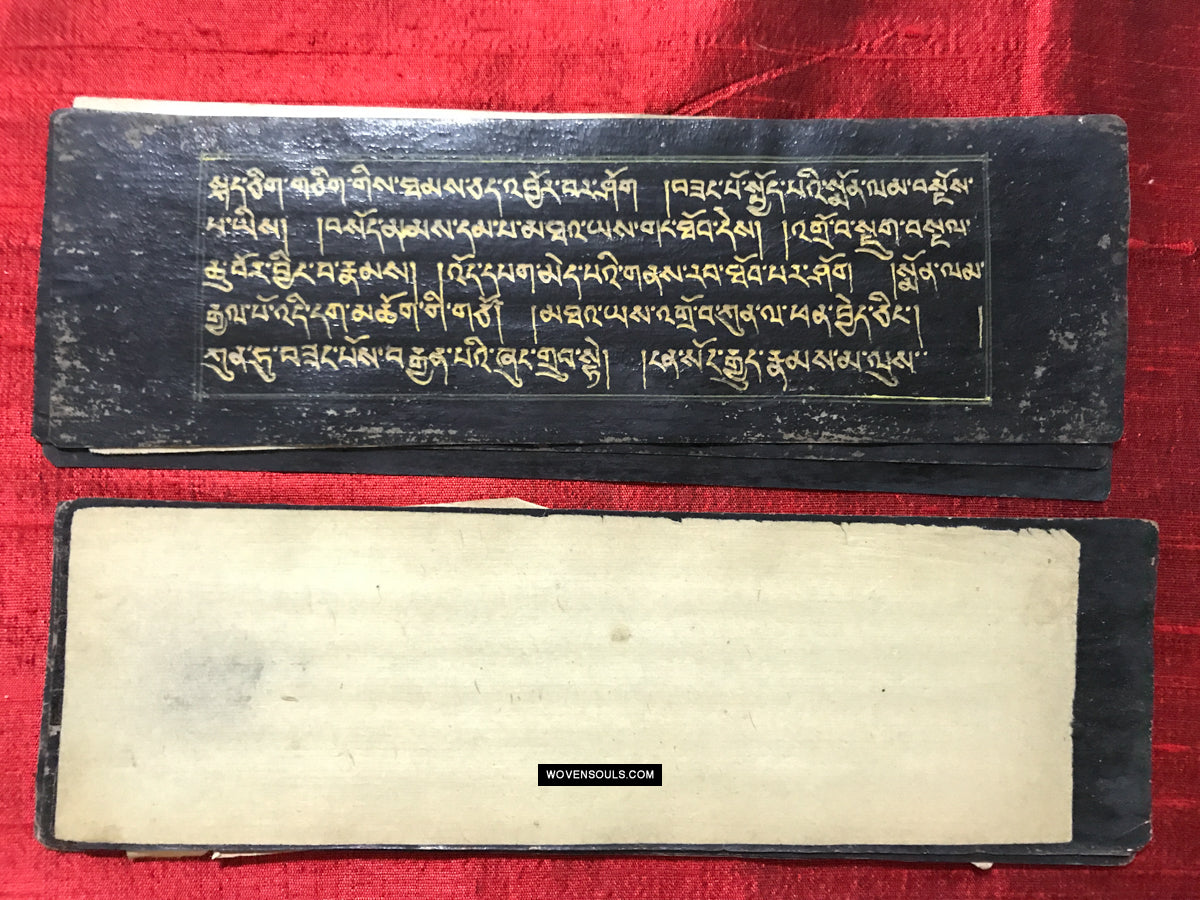 སྐད་ཅིག་གཅིག་གིས་ཐམས་ཅད་འབྱོར་བར་ཤོག །བཟང་པོ་སྤྱོད་པའི་སྨོན་ལམ་བསྔོས་
པ་ཡིས། །བསོད་ནམས་དམ་པ་མཐའ་ཡས་གང་ཐོབ་དེས། །འགྲོ་བ་སྡུག་བསྔལ་
ཆུ་བོར་བྱིང་བ་རྣམས། །འོད་དཔག་མེད་པའི་གནས་རབ་ཐོབ་པར་ཤོག །སྨོན་ལམ་
རྒྱལ་པོ་འདི་དག་མཆོག་གི་གཙོ། །མཐའ་ཡས་འགྲོ་བ་ཀུན་ལ་ཕན་བྱེད་ཅིང་། །
ཀུན་ཏུ་བཟང་པོས་བརྒྱན་པའི་ཞུང་གྲུབ་སྟེ། །ངན་སོང་རྒྱུད་རྣམས་མ་ལུས་
WOVENSOULS.COM